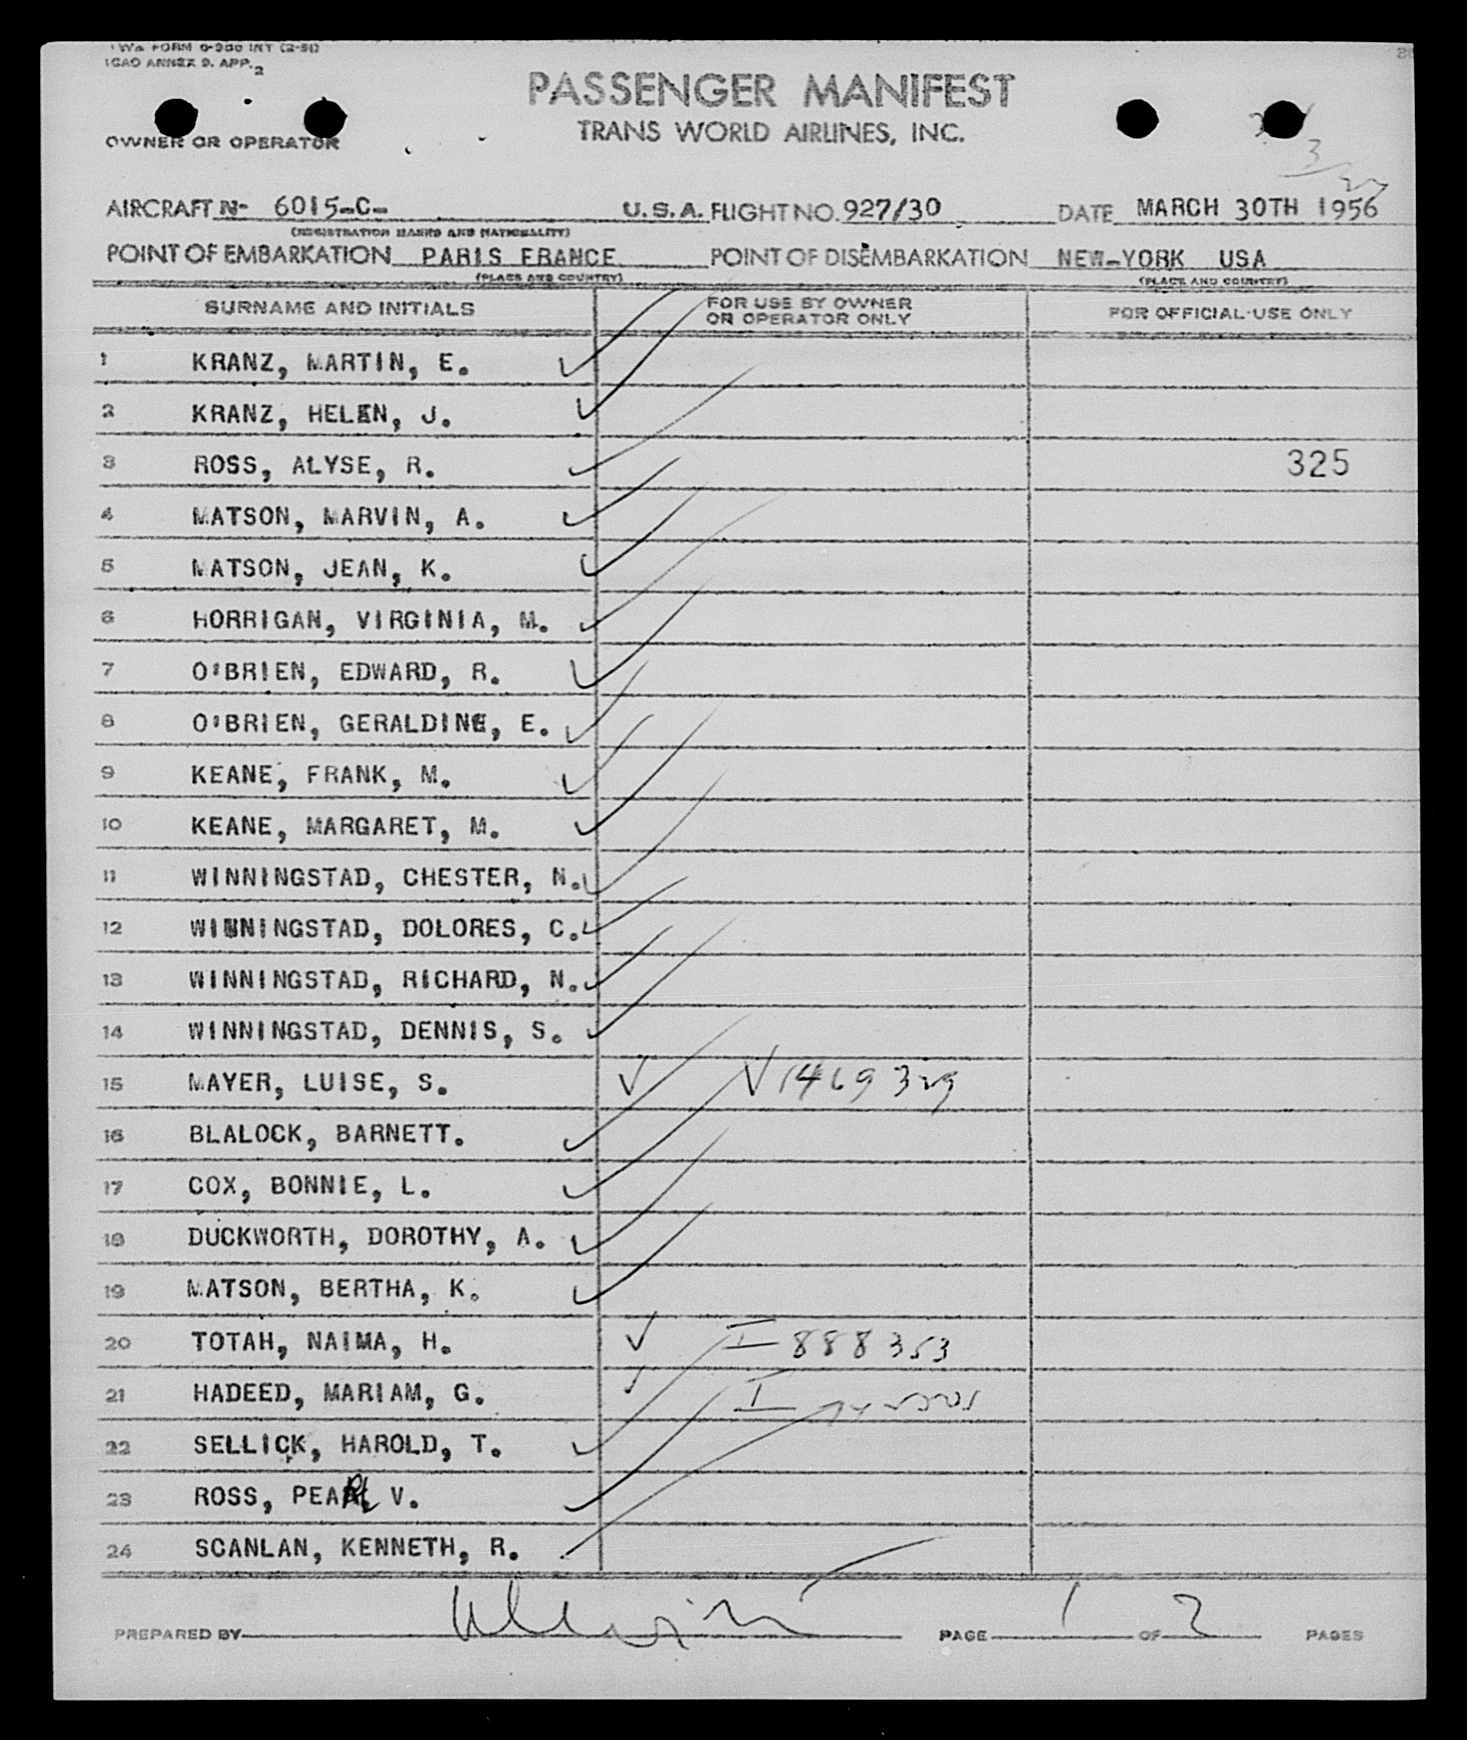 TWA FORM 0-900 INT (2-51)
ICAO ANNEX 9. APP. 2
PASSENGER MANIFEST
TRANS WORLD AIRLINES, INC.
OWNER OR OPERATOR
AIRCRAFT N- 6015-C- U.S.A. FLIGHT NO. 927/30 DATE MARCH 30TH 1956
(REGISTRATION MARKS AND NATIONALITY)
POINT OF EMBARKATION PARIS FRANCE POINT OF DISEMBARKATION NEW-YORK USA
(PLACE AND COUNTRY) (PLACE AND COUNTRY)
SURNAME AND INITIALS FOR USE BY OWNER OR OPERATOR ONLY FOR OFFICIAL-USE ONLY
1 KRANZ, MARTIN, E.
2 KRANZ, HELEN, J.
3 ROSS, ALYSE, R. 325
4 MATSON, MARVIN, A.
5 MATSON, JEAN, K.
6 HORRIGAN, VIRGINIA, M.
7 O'BRIEN, EDWARD, R.
8 O'BRIEN, GERALDINE, E.
9 KEANE, FRANK, M.
10 KEANE, MARGARET, M.
11 WINNINGSTAD, CHESTER, N.
12 WINNINGSTAD, DOLORES, C.
13 WINNINGSTAD, RICHARD, N.
14 WINNINGSTAD, DENNIS, S.
15 MAYER, LUISE, S. V1469329
16 BLALOCK, BARNETT.
17 COX, BONNIE, L.
18 DUCKWORTH, DOROTHY, A.
19 MATSON, BERTHA, K.
20 TOTAH, NAIMA, H. I-888353
21 HADEED, MARIAM, G. I
22 SELLICK, HAROLD, T.
23 ROSS, PEARL V.
24 SCANLAN, KENNETH, R.
PREPARED BY PAGE 1 OF 2 PAGES